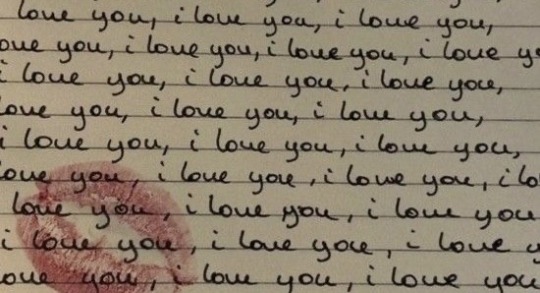 love you, i love you, i love you,
ove you, i love you, i love you, i love yo
i love you, i love you, i love you,
love you, i love you, i love you,
i love you, i love you, i love you,
ove you, i love you, i love you, i lo
love you, i love you, i love you
i love you, i love you, i love y
ove you, i love you, i love you